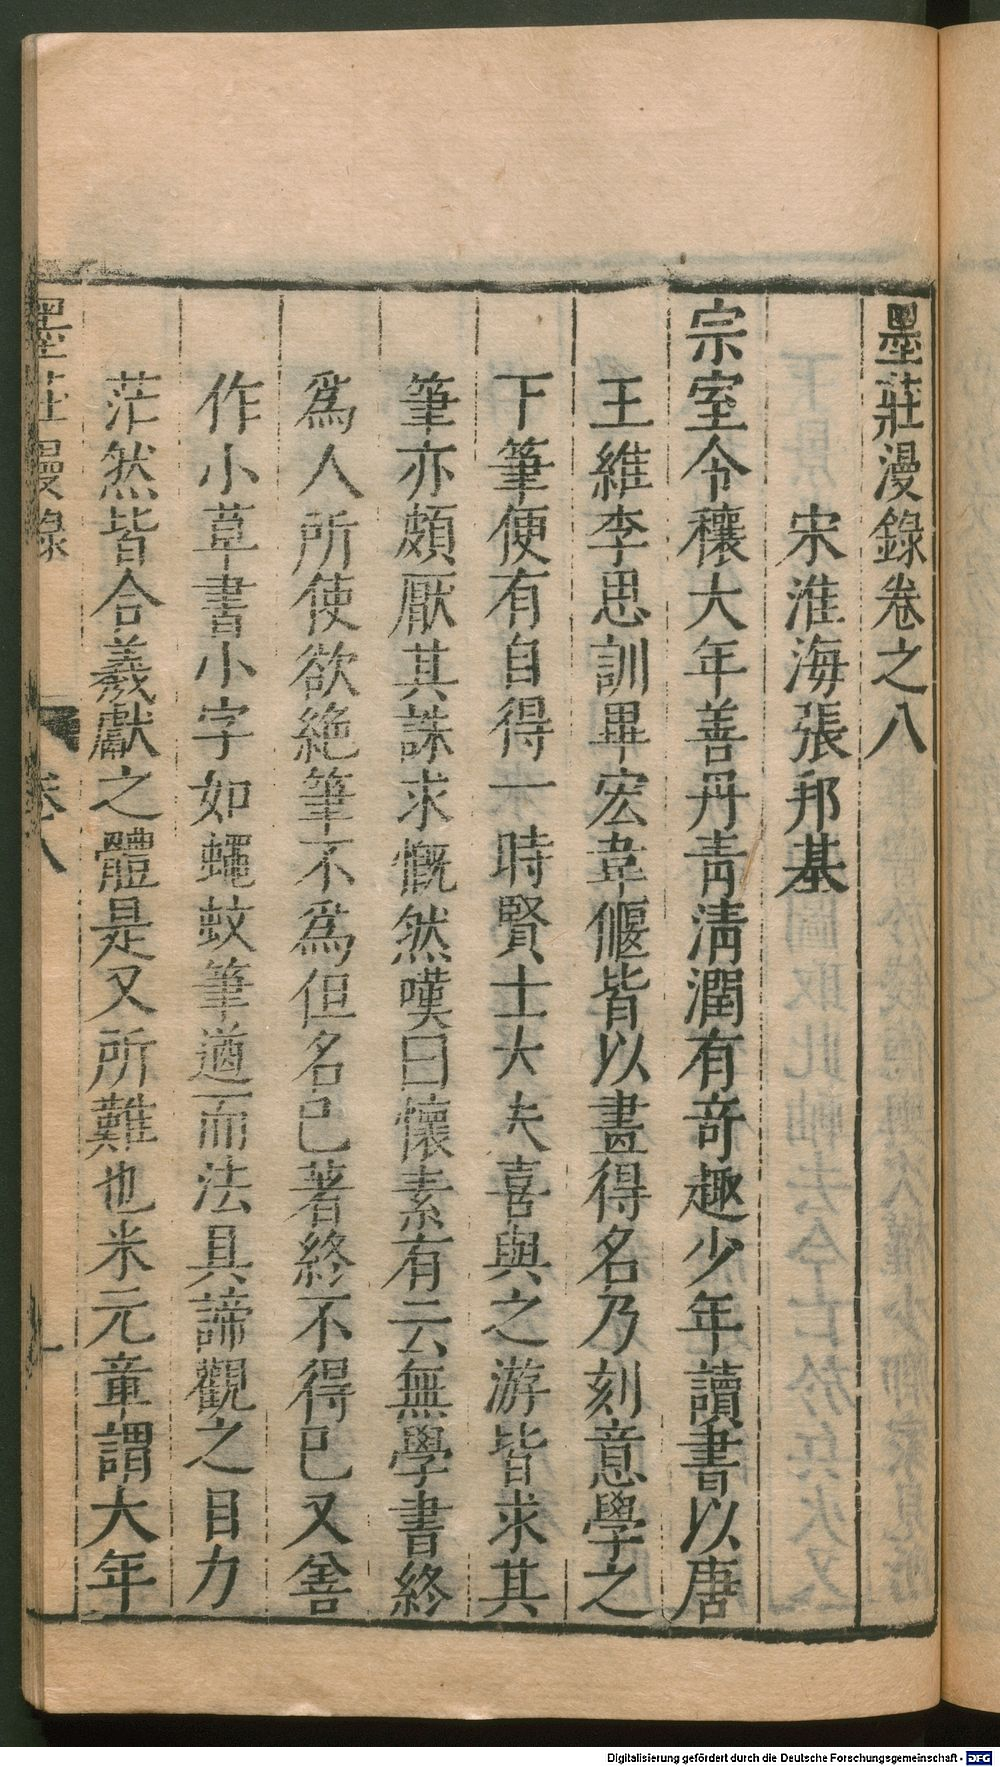 墨莊漫錄卷之八
宋淮海張邦基
宗室令穰大年善丹靑淸潤有竒趣少年讀書以唐
王維李思訓畢宏韋偃皆以畫得名乃刻意學之
下筆便有自得一時賢士大夫喜與之游皆求其
筆亦頗厭其誅求慨然嘆曰懷素有云無學書終
爲人所使欲絶筆不爲但名已著終不得已又舍
作小草書小字如蠅蚊筆遒而法具諦觀之目力
茫然皆合羲獻之體是又所難也米元章謂大年
墨莊漫錄
卷八
一
Digitalisierung gefördert durch die Deutsche Forschungsgemeinschaft - DFG